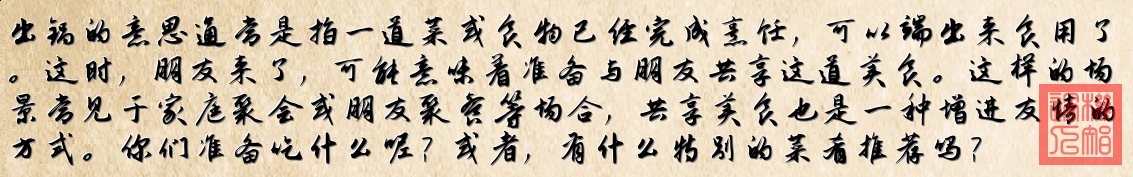 出锅的意思通常是指一道菜或食物已经完成烹饪，可以端出来食用了
。这时，朋友来了，可能意味着准备与朋友共享这道美食。这样的场
景常见于家庭聚会或朋友聚餐等场合，共享美食也是一种增进友情的
方式。你们准备吃什么呢？或者，有什么特别的菜肴推荐吗？